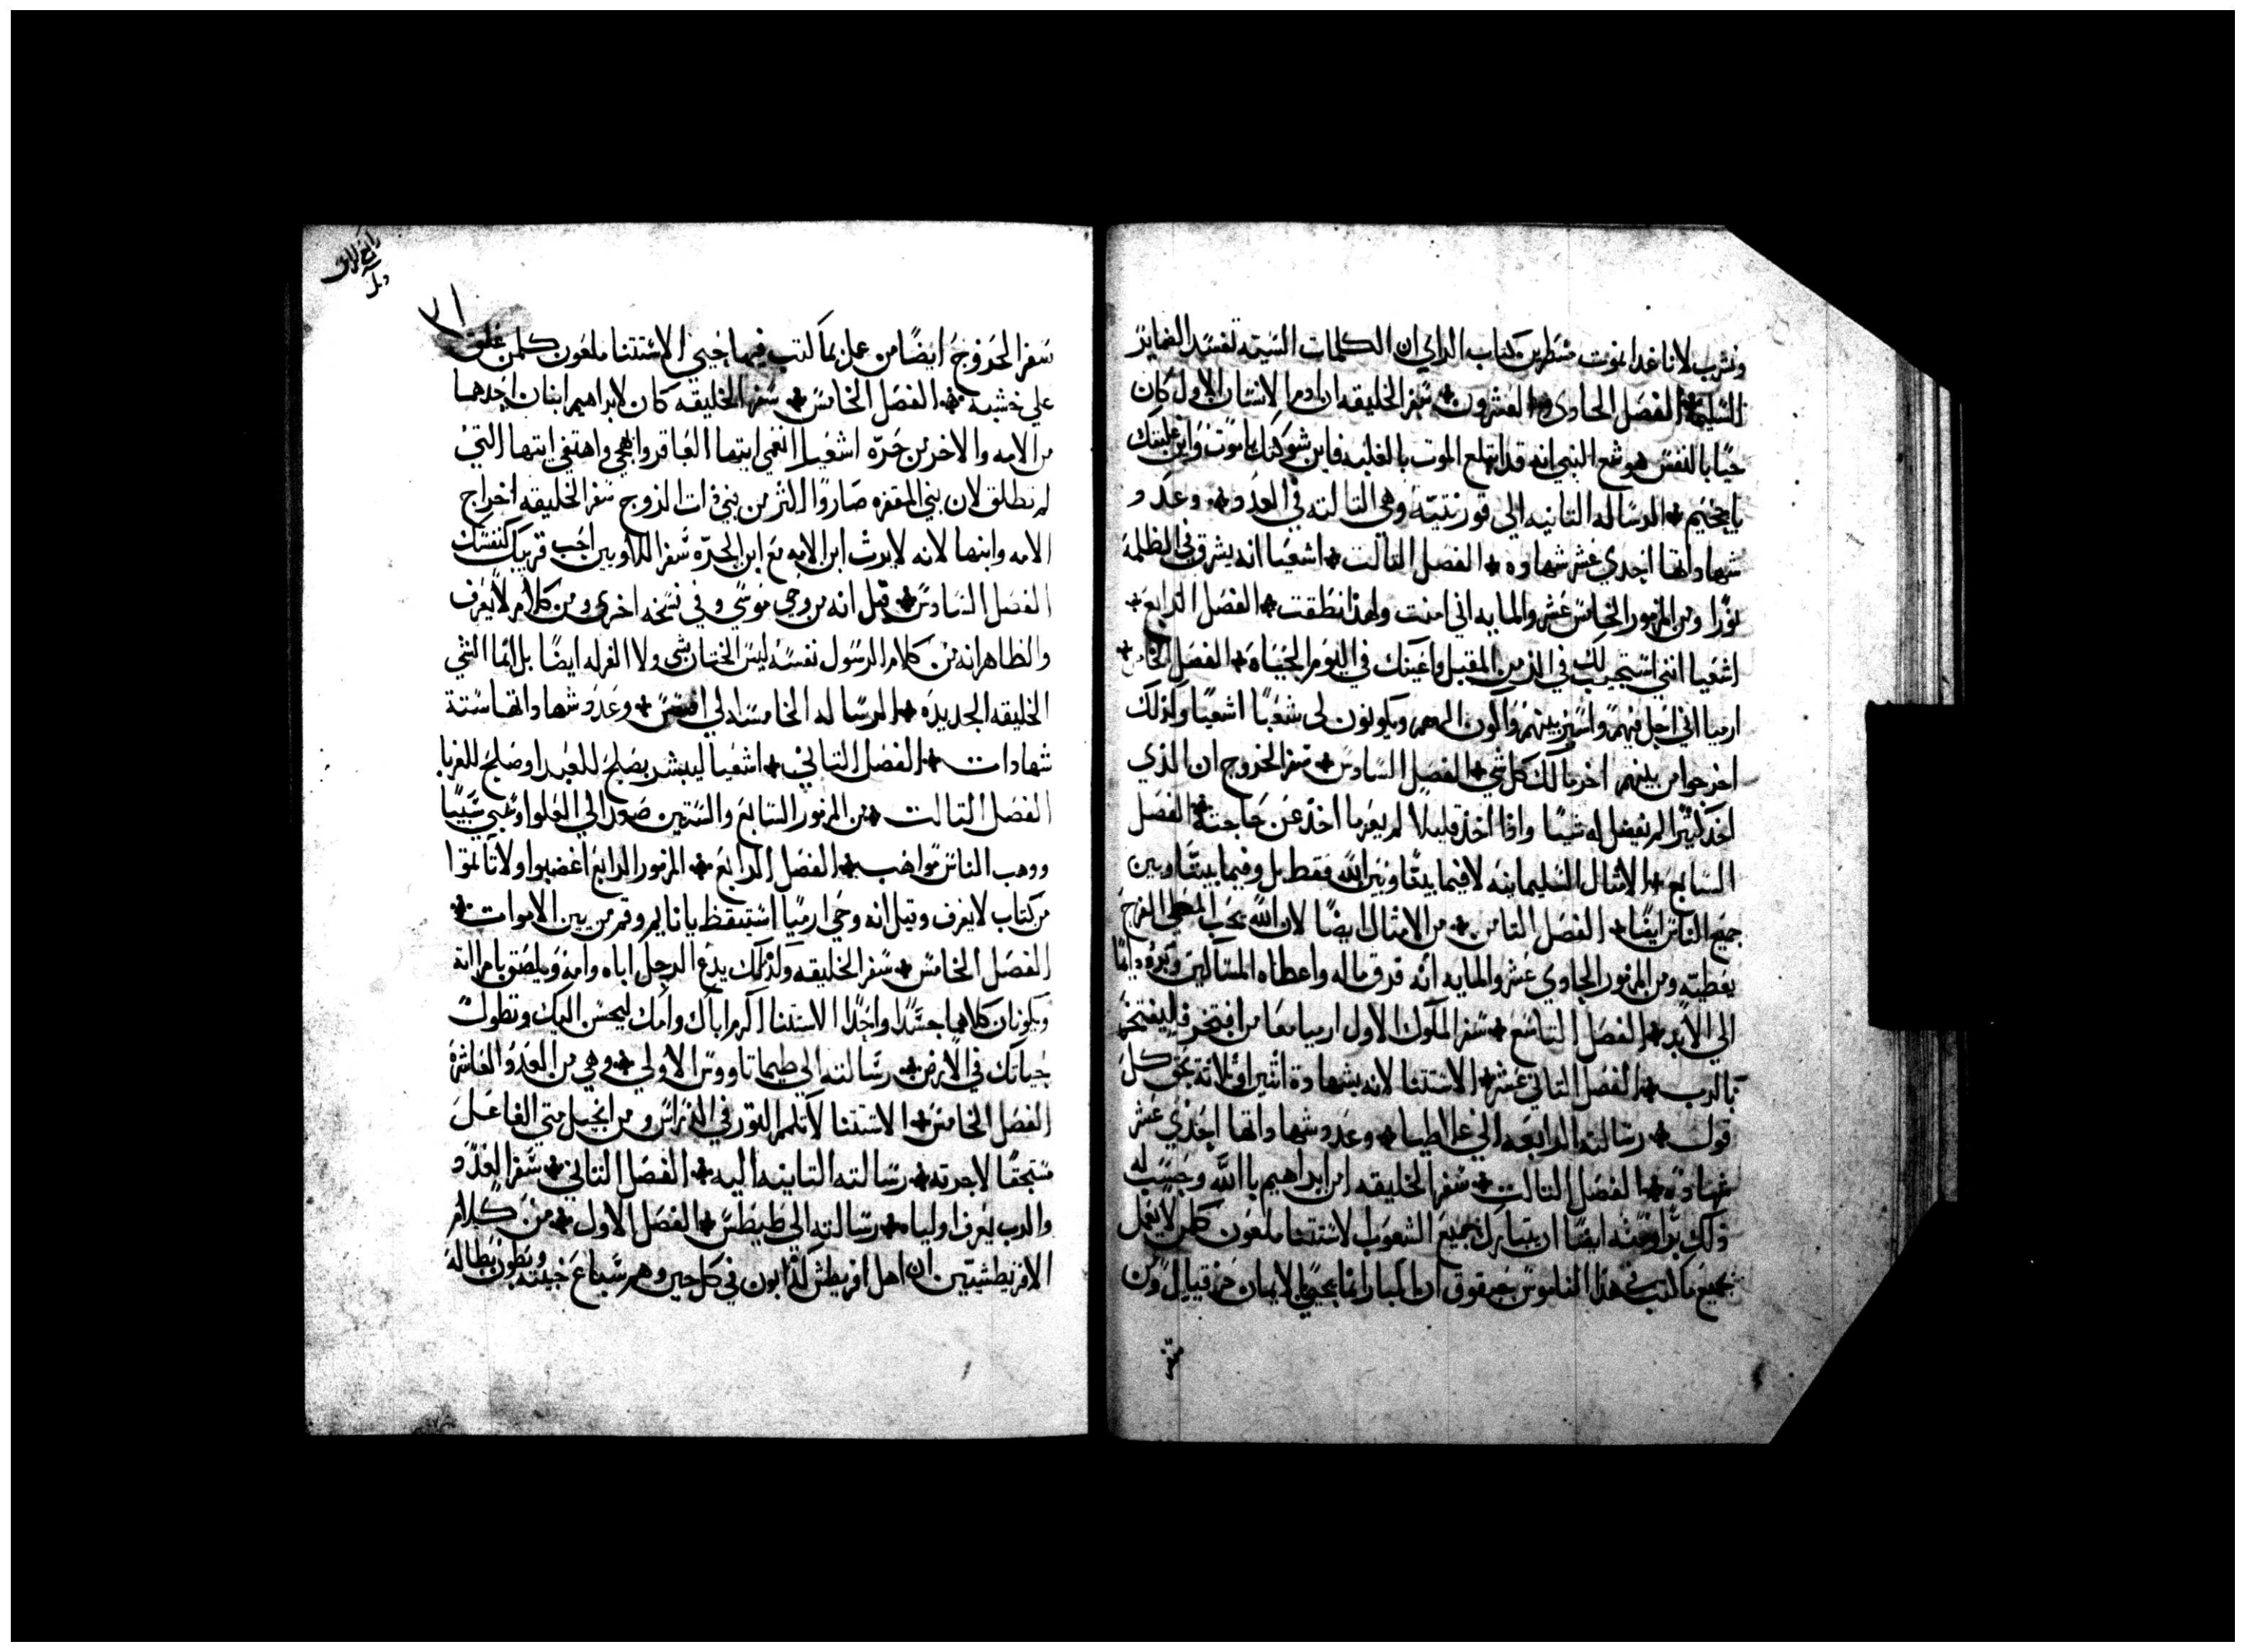 ونشرب لاننا غدا نموت منطرس كتاب الراي ان الكلمات السيه تفسد الضماير
السليمه الفصل الحادي والعشرون سفر الخليقه ان ادم الانسان الاول كان
حيا بالنفس هوشع النبي انه قد ابتلع الموت بالغلبه فاين شوكتك يا موت واين غلبتك
يا جحيم الرساله التانيه الي قورنتيه وهي التالته في العدد وعدد
شهاداتها احدي عشر شهاده الفصل التالت اشعيا انه يشرق في الظلمة
نورا ومن المزمور الخامس عشر والمايه اني امنت ولهذا نطقت الفصل الرابع
اشعيا انني استجيب لك في الزمن المقبل واعينك في اليوم الحياه الفصل الخامس
ارميا اني احل فيهم واسير بينهم واكون الههم ويكونون لي شعبا اشعيا وكذلك
اخرجوا من بينهم اخر مالك كل شي الفصل السادس سفر الخروج ان الذي
اخذ كثيرا لم يفضل له شيا واذا اخذ قليلا لم يعز ما اخذ عن حاجته الفصل
السابع الامثال السليمانيه لا فيما بيننا وبين الله فقط بل وفيما بيننا وبين
جميع الناس ايضا الفصل التامن من الامثال ايضا لان الله يحب المعطي الفرح
بعطيته ومن المزمور الحادي عشر والمايه انه فرق ماله واعطاه المساكين وبره دايما
الي الابد الفصل التاسع سفر الملوك الاول ارميا معا من افتخر فليفتخر
بالرب الفصل التاني عشر الاستتنا لانه بشهادة اتنين او تلاتة تحق كل
قول رسالته الرابعه الي غلاطيا وعدد شهاداتها احدي عشر
شهادة الفصل التالت سفر الخليقه امن ابراهيم بالله وحسب له
ذلك برا ومنه ايضا ان يتبارك جميع الشعوب الاستتنا ملعون كلمن لا يعمل
بجميع ما كتب في هذا الناموس حبقوق ان البار انما يحيي بالايمان حزقيال ومن
سفر
سفر الخروج ايضا من عمل بما كتب فيها حيي الاستتنا ملعون كلمن علق
علي خشبه الفصل الخامس سفر الخليقه كان لابراهيم ابنان احدهما
من الامه والاخر من حره اشعيا انعمي ايتها العاقر وابهجي واهتفي ايتها التي
لم تطلق لان بني المقفره صاروا اكتر من بني ذات الزوج سفر الخليقه اخراج
الامه وابنها لانه لا يرث ابن الامه مع ابن الحره سفر اللاويين احب قريبك كنفسك
الفصل السادس قيل انه من وحي موسي وفي نسخه اخري ومن كلام لا يعرف
والظاهر انه من كلام الرسول نفسه ليس الختان شي ولا الغرله ايضا بل انما الشي
الخليقه الجديده الرساله الخامسه الي افسس وعدد شهاداتها ستة
شهادات الفصل التاني اشعيا ليبشر بصلح للبعدا وصلح للقربا
الفصل التالت من المزمور السابع والستين صعد الي العلوا وسبي سبيا
ووهب الناس مواهب الفصل الرابع المزمور الرابع اغضبوا ولا تاتموا
من كتاب لا يعرف وقيل انه وحي ارميا استيقظ يا نايم وقم من بين الاموات
الفصل الخامس سفر الخليقه ولذلك يدع الرجل اباه وامه ويلصق بامراته
ويكونان كلاهما جسدا واحدا الاستتنا اكرم اباك وامك ليحسن اليك وتطول
حياتك في الارض رسالته الي طيماتاووس الاولي وهي من العدد العاشرة
الفصل الخامس الاستتنا لا تكمم التور في الدراس ومن انجيل متي الفاعل
مستحقا لاجرته رسالته التانيه اليه الفصل التاني سفر العدد
والرب يعرف اولياه رسالته الي طيطس الفصل الاول من كلام
الاقريطشيين ان اهل اقريطش كذابون في كل حين وهم سباع خبيثه وبطون بطاله